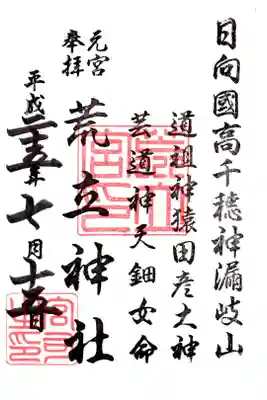 日向國高千穂神漏岐山
道祖神猿田彦大神
芸道神天鈿女命
荒立神社
元宮
奉拝
平成二十五年七月十五日